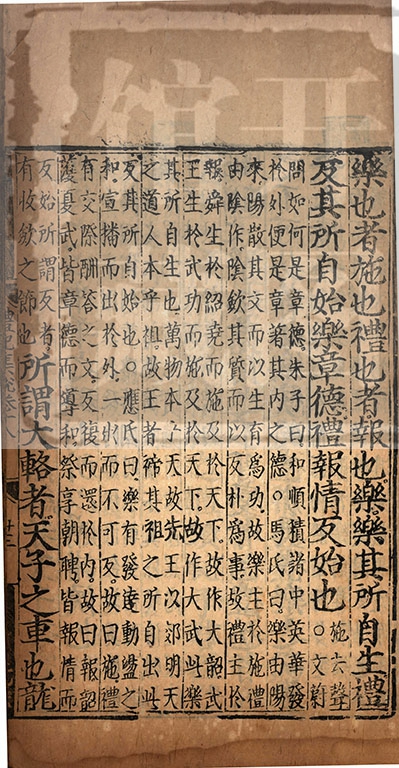 樂也者施也禮也者報也樂樂其所自生禮
反其所自始樂章德禮報情反始也○施去聲
○文蔚
問如何是章德朱子曰和順積諸中英華發
於外便是章著其內之德○馬氏曰樂由陽
來陽散其文而以生育為功故樂主於施禮
由陰作陰斂其質而以反朴為事故禮主於
報舜生於紹堯而施及於天下故作大韶武
王生於武功而施及於天下故作大武此樂
其所自生也萬物本乎天故先王以郊明天
之道人本乎祖故王者禘其祖之所自出此
反其所自始也○應氏曰樂有發達動盪之
和宣播而出於外一出而不可反故曰施禮
有交際酬答之文反復而還於內故曰報韶
濩夏武皆章德而導和祭享朝聘皆報情而
反始所謂反者
有收斂之節也
所謂大輅者天子之車也龍